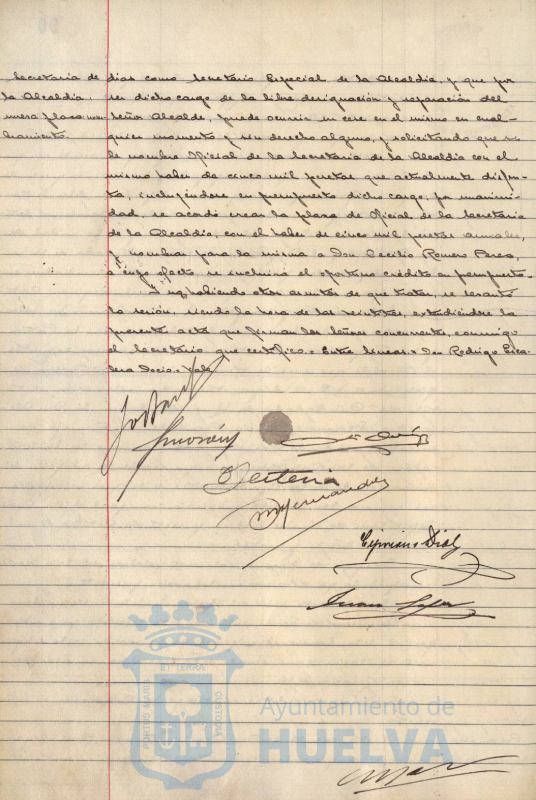 Secretaría de
la Alcaldía,
nueva plaza: nom-
bramiento.
dias como Secretario Especial de la Alcaldía, y que por
ser dicho cargo de la libre designación y separación del
Señor Alcalde, puede ocurrir su cese en el mismo en cual-
quier momento y sin derecho alguno, y solicitando que se
le nombre Oficial de la Secretaría de la Alcaldía con el
mismo haber de cinco mil pesetas que actualmente disfru-
ta, incluyéndose en presupuesto dicho cargo, por unanimi-
dad, se acordó crear la plaza de Oficial de la Secretaría
de la Alcaldía, con el haber de cinco mil pesetas anuales,
y nombrar para la misma a Don Cecilio Romero Perez,
a cuyo efecto se incluirá el oportuno crédito en presupuesto.
Y no habiendo otros asuntos de que tratar, se levantó
la sesión, siendo la hora de las veintitres, extendiéndose la
presente acta que firman los Señores concurrentes, conmigo
el Secretario que certifico = Entre lineas = Don Rodrigo
Vale
Cipriano Diaz
Juan
PORTUS MARIS
ET TERRÆ
CUSTODIA
Ayuntamiento de
HUELVA